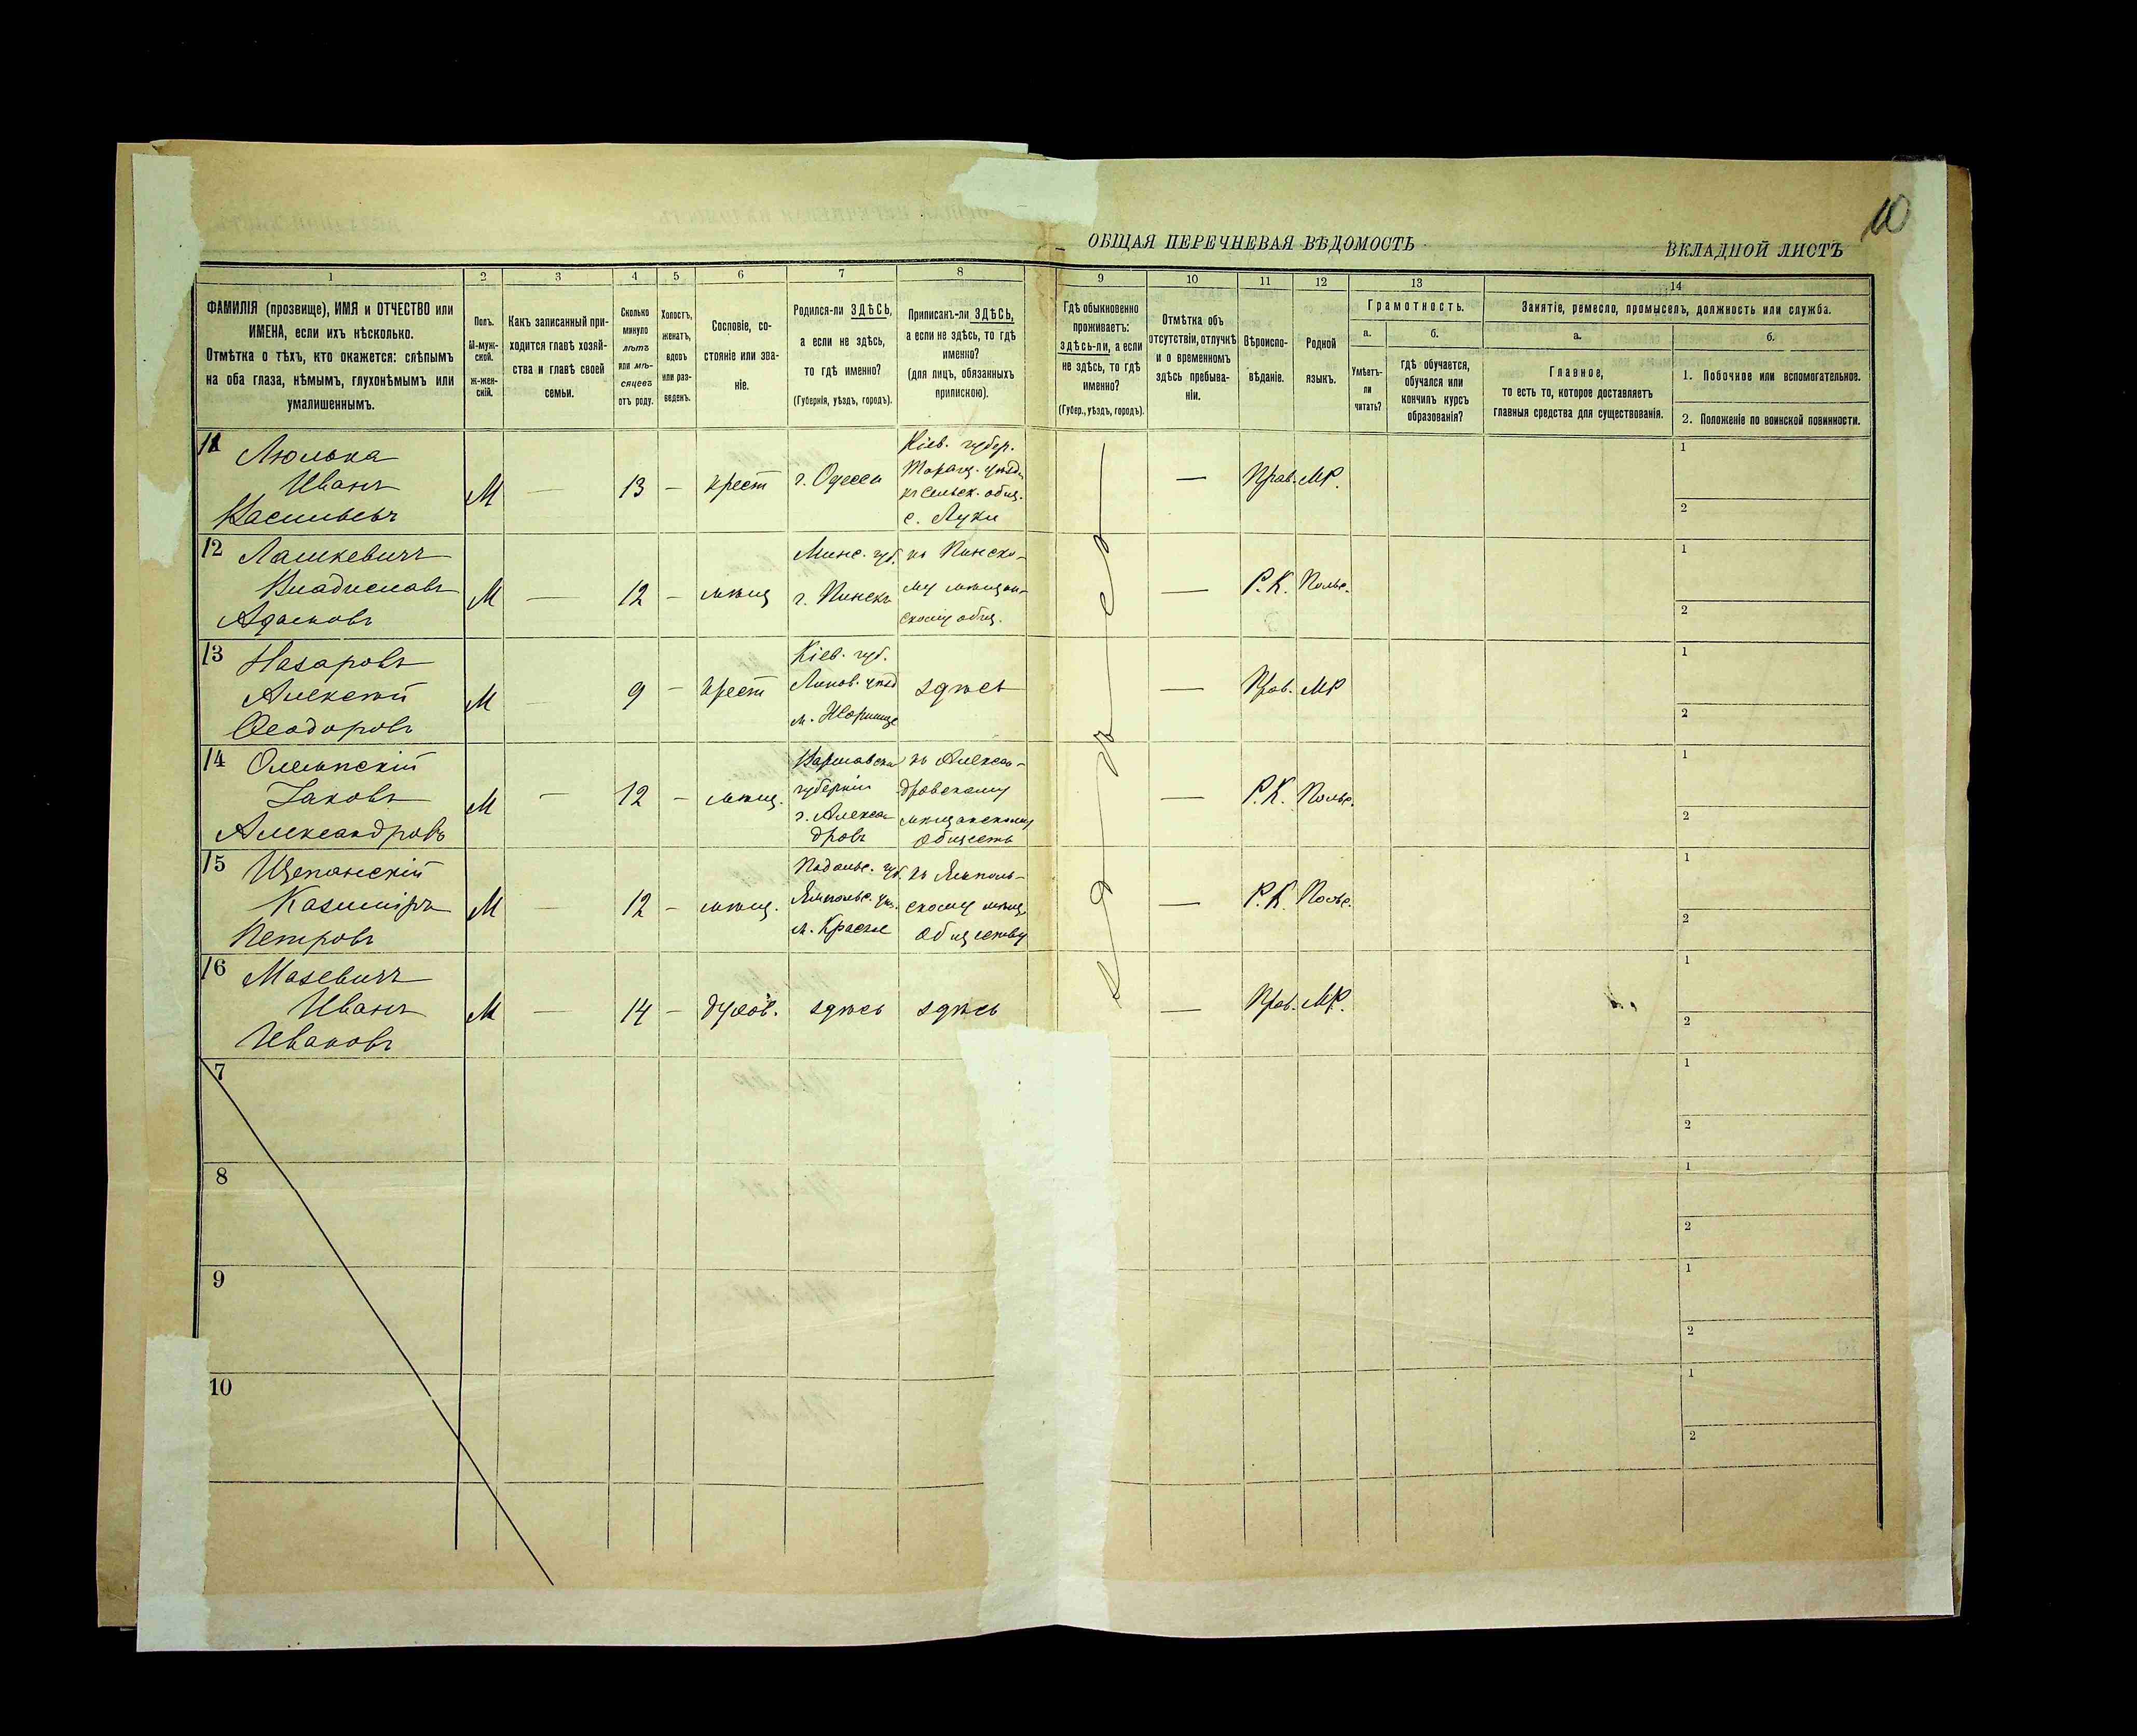 10
ОБЩАЯ ПЕРЕЧНЕВАЯ ВѢДОМОСТЬ
ВКЛАДНОЙ ЛИСТЪ
1
ФАМИЛІЯ (прозвище), ИМЯ и ОТЧЕСТВО или
ИМЕНА, если ихъ нѣсколько.
Отмѣтка о тѣхъ, кто окажется: слѣпымъ
на оба глаза, нѣмымъ, глухонѣмымъ или
умалишеннымъ.
2
Полъ.
М-муж-
ской.
Ж-жен-
скій.
3
Какъ записанный при-
ходится главѣ хозяй-
ства и главѣ своей
семьи.
4
Сколько
минуло
лѣтъ
или мѣ-
сяцевъ
отъ роду.
5
Холостъ,
женатъ,
вдовъ
или раз-
веденъ.
6
Сословіе, со-
стояніе или зва-
ніе.
7
Родился-ли ЗДѢСЬ,
а если не здѣсь,
то гдѣ именно?
(Губернія, уѣздъ, городъ).
8
Приписанъ-ли ЗДѢСЬ,
а если не здѣсь, то гдѣ
именно?
(для лицъ, обязанныхъ
припискою).
9
Гдѣ обыкновенно
проживаетъ:
здѣсь-ли, а если
не здѣсь, то гдѣ
именно?
(Губер., уѣздъ, городъ).
10
Отмѣтка объ
отсутствіи, отлучкѣ
и о временномъ
здѣсь пребыва-
ніи.
11
Вѣроиспо-
вѣданіе.
12
Родной
языкъ.
13
Грамотность.
а.
Умѣетъ-
ли
читать?
б.
гдѣ обучается,
обучался или
кончилъ курсъ
образованія?
14
Занятіе, ремесло, промыселъ, должность или служба.
а.
Главное,
то есть то, которое доставляетъ
главныя средства для существованія.
б.
1. Побочное или вспомогательное.
2. Положеніе по воинской повинности.
11
Люлька
Иванъ
Васильевъ
М — 13 — крест г. Одесса
Кіев. губер.
Таращ. уѣзд.
къ Сельск. общ.
с. Луки
— Прав. МР.
1
2
12
Лашкевичъ
Владиславъ
Адамовъ
М — 12 — мѣщ
Минс. губ.
г. Пинскъ
къ Пинско-
му мѣщан-
скому общ.
— Р.К. Польс.
1
2
13
Назаровъ
Алексѣй
Ѳеодоровъ
М 9 — крест
Кіев. губ.
Липов. уѣзд
здѣсь
— Прав. МР
1
2
14
Олешкскій
Яковъ
Александровъ
М — 12 — мѣщ.
Варшавской
губерніи
г. Алексан
дровъ
къ Алексан-
дровскому
мѣщанскому
обществ
— Р.К. Польс.
1
2
15
Щепанскій
Казиміръ
Петровъ
М — 12 — мѣщ.
Подольс. губ.
Ямпольс. уѣз.
м. Красне
къ Ямполь-
скому мѣщ.
обществу
— Р.К. Польс.
1
2
16
Мазевичъ
Иванъ
Ивановъ
М — 14 — духов. здѣсь здѣсь
— Прав. МР.
1
2
здѣсь
7
1
2
8
1
2
9
1
2
10
1
2